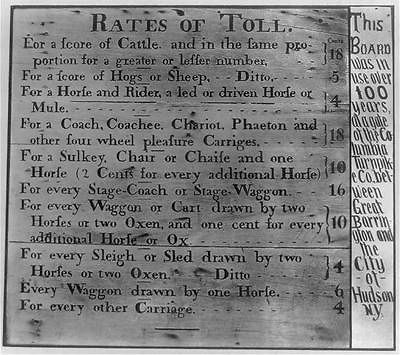 RATES OF TOLL.
Cents
For a ſcore of Cattle. and in the ſame pro-
portion for a greater or leſſer number, 18
For a ſcore of Hogs or Sheep, - - Ditto, - - 5
For a Horſe and Rider, a led or driven Horſe or
Mule. - - - - - - - - - - - - - - - - 4
For a Coach, Coachee, Chariot, Phaeton and
other four wheel pleaſure Carriges. - - - 18
For a Sulkey, Chair or Chaiſe and one
Horſe (2 Cents for every additional Horſe) 10
For every Stage-Coach or Stage-Waggon. - - 16
For every Waggon or Cart drawn by two
Horſes or two Oxen, and one cent for every 10
additional Horſe or Ox - - - - - - - -
For every Sleigh or Sled drawn by two
Horſes or two Oxen. - - Ditto - - - - 4
Every Waggon drawn by one Horſe. - - - 6
For every other Carriage. - - - - - - - 4
This
BOARD
was in
use over
100
years,
at a gate
of the Co
lumbia
Turnpik
e Co. bet-
ween
Great
Barrin
gton and
the
City
of
Hudson
N.Y.